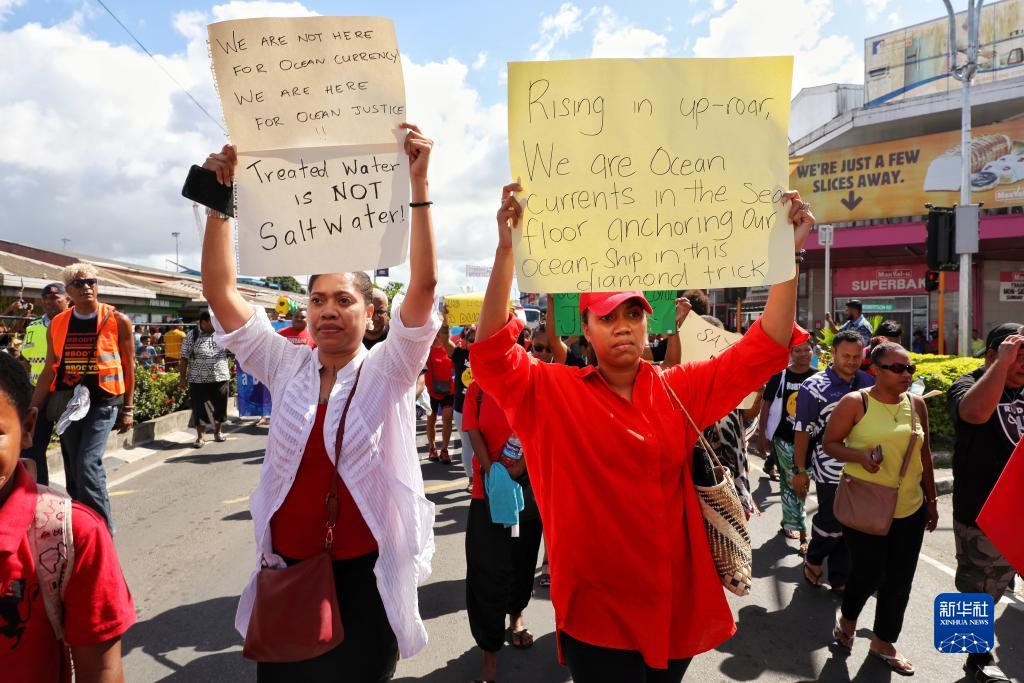 WE ARE NOT HERE
FOR OCEAN CURRENCY
WE ARE HERE
FOR OCEAN JUSTICE
!!
Treated Water
is NOT
Salt Water!
Rising in up-roar,
We are Ocean
currents in the Sea
floor anchoring our
ocean-ship in this
diamond trick
WE'RE JUST A FEW
SLICES AWAY.
SUPERBAK
#BODYS
新华社
XINHUA NEWS